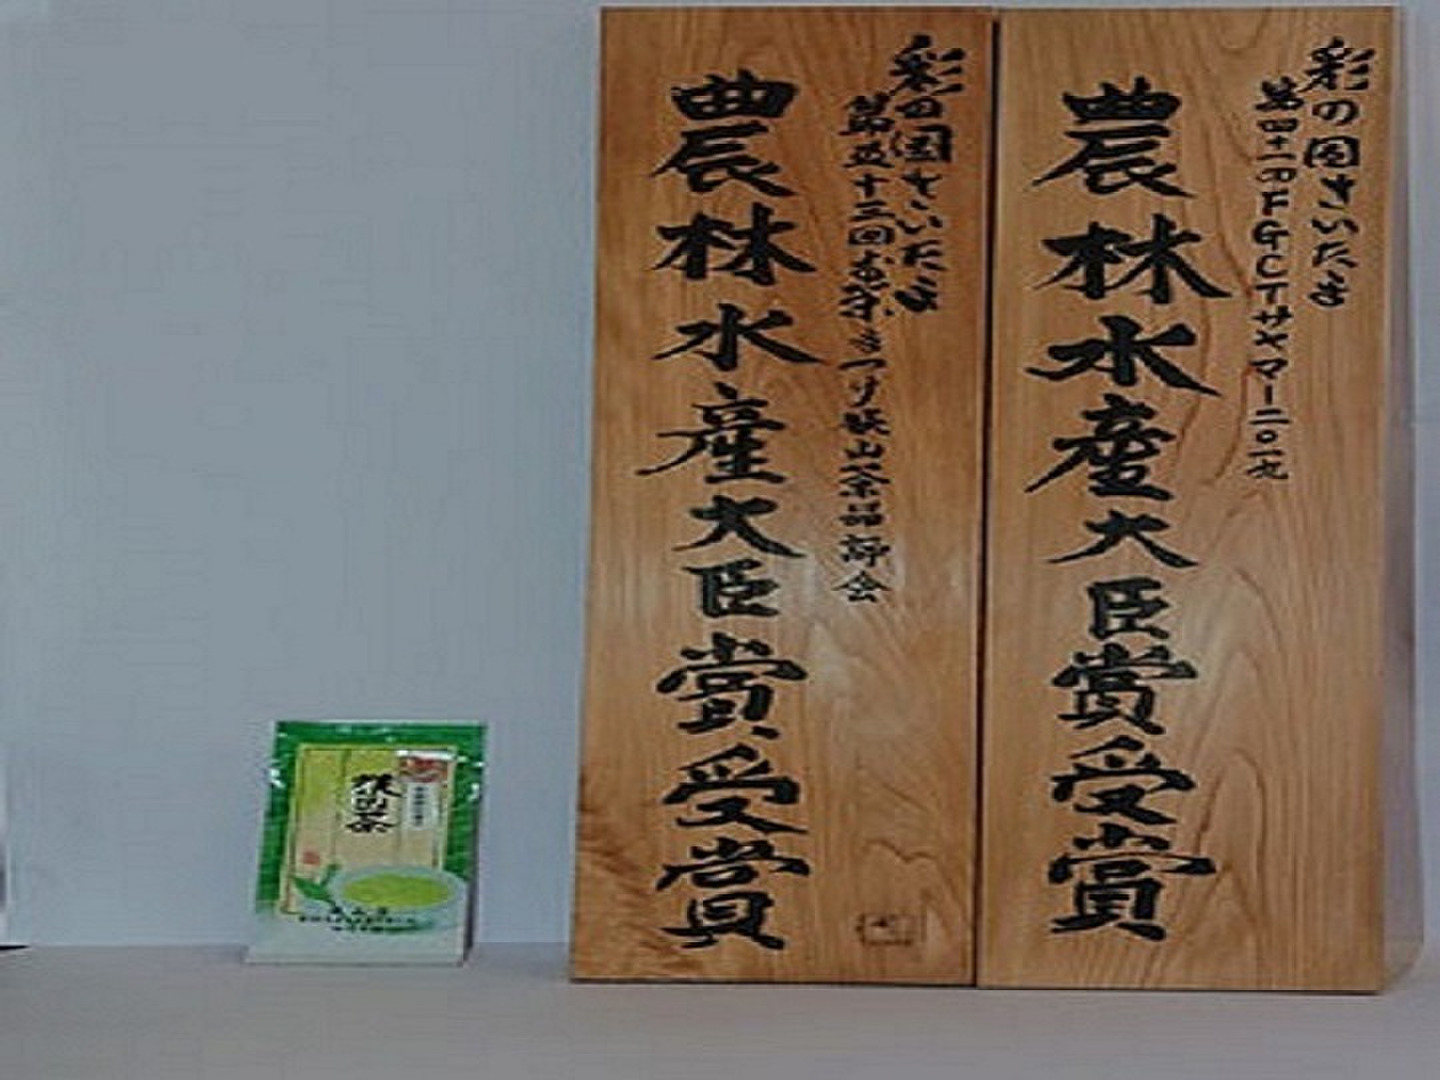 彩の国さいたま
第四十一回FGCTサヤマー二〇一九
農林水産大臣賞受賞
彩の国さいたま
第五十三回お茶まつり狭山茶品評会
農林水産大臣賞受賞
狭山茶